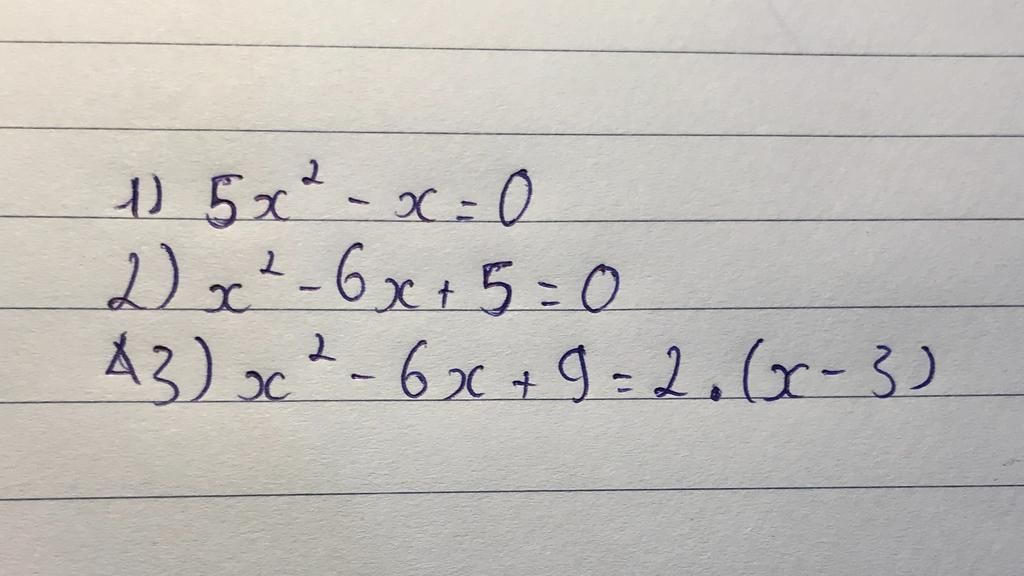 1) 5x² - x = 0
2) x² - 6x + 5 = 0
3) x² - 6x + 9 = 2 . (x - 3)